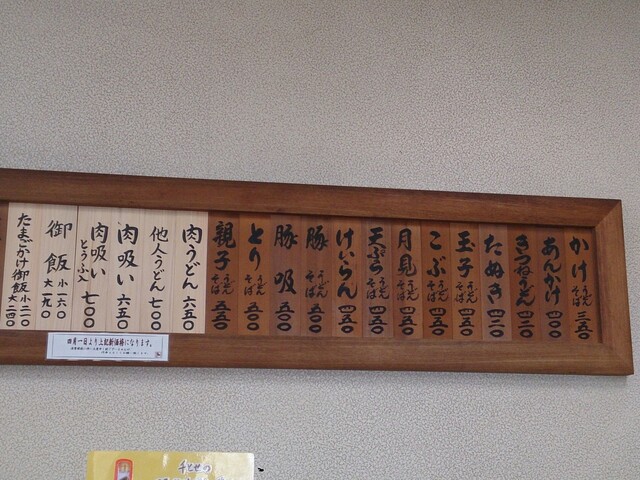 かけ うどん そば 三五〇
あんかけ 四〇〇
きつねうどん 四二〇
たぬき 四二〇
玉子 うどん そば 四二〇
こぶ うどん そば 四五〇
月見 うどん そば 四五〇
天ぷら うどん そば 四五〇
けいらん 四五〇
豚 うどん そば 五〇〇
豚吸 五〇〇
とり うどん そば 五五〇
親子 うどん そば 五五〇
肉うどん 六五〇
他人うどん 七〇〇
肉吸い 六五〇
肉吸い とうふ入 七〇〇
御飯 小一六〇 大一九〇
たまごかけ御飯 小二一〇 大二四〇
四月一日より上記新価格になります。
千とせの